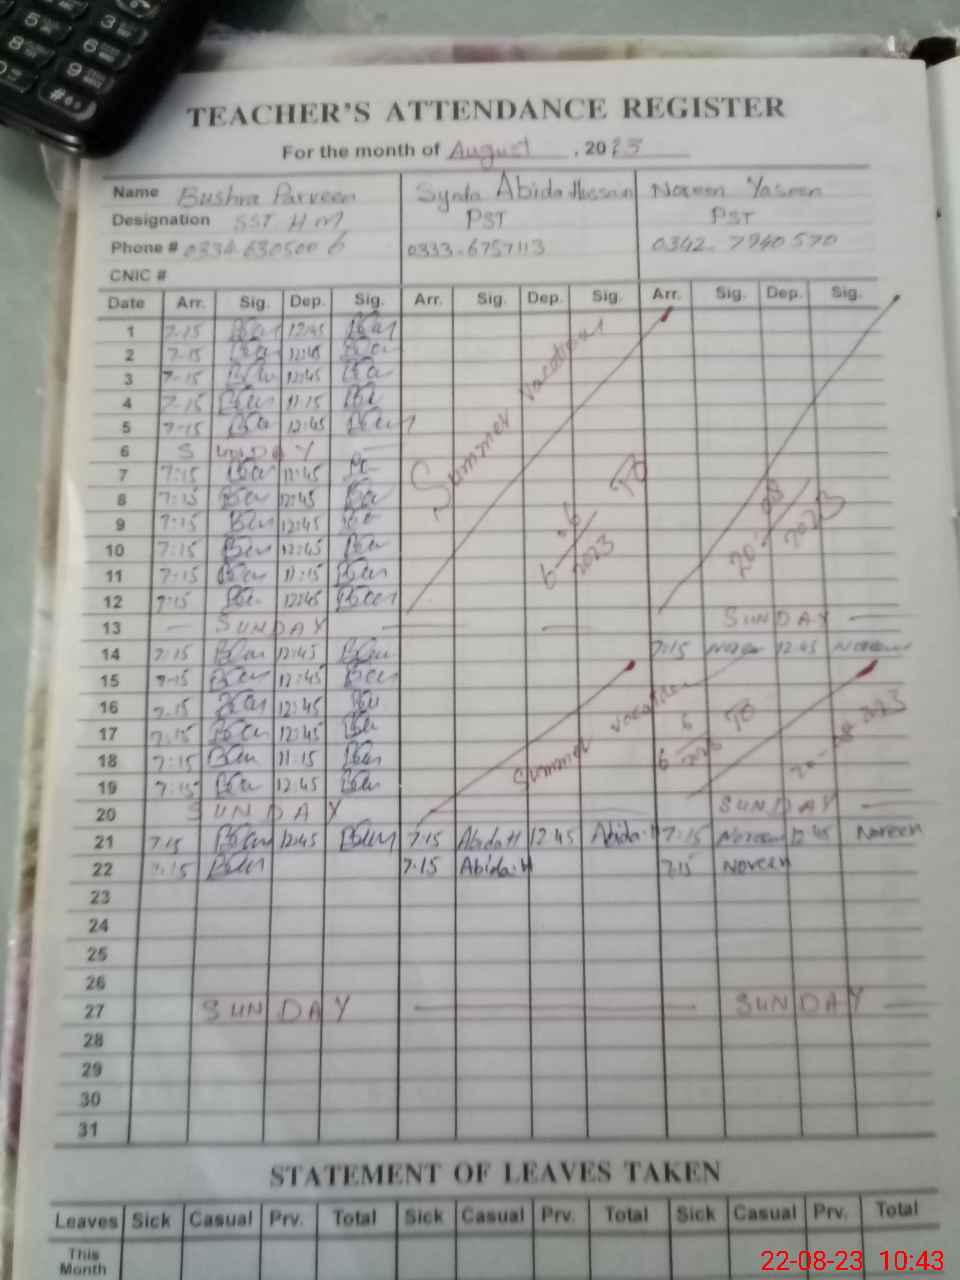 TEACHER'S ATTENDANCE REGISTER
For the month of August, 2023
Name Bushra Parveen Syeda Abida Hussain Noreen Yaseen
Designation SST HM PST PST
Phone # 0334-6305006 0333-6757113 0342-7940570
CNIC #
Date Arr. Sig. Dep. Sig. Arr. Sig. Dep. Sig. Arr. Sig. Dep. Sig.
1 7-15 12:45
2 7-15 12:45
3 7-15 12:45
4 7-15 11-15
5 7-15 12:45
Summer vacations
6 SUNDAY
7 7:15 12:45
8 7:15 12:45
9 7:15 12:45
10 7:15 12:45
11 7:15 11:15
12 7:15 12:45
6.06 2023 TO 20.08 2023
13 — SUNDAY — — SUNDAY —
14 7:15 12:45 7:15 Noreen 12 45 Noreen
15 7-15 12:45
16 7.15 12:45
17 7:15 12:45
18 7:15 11:15
19 7:15 12.45
Summer vacation 6 6 2023 TO
20 SUNDAY SUNDAY —
21 7:15 12:45 7:15 Abida H 12 45 Abida H 7:15 Noreen 12 45 Noreen
22 7:15 7:15 Abida H 7:15 Noreen
23
24
25
26
27 SUNDAY — SUNDAY —
28
29
30
31
STATEMENT OF LEAVES TAKEN
Leaves Sick Casual Prv. Total Sick Casual Prv. Total Sick Casual Prv. Total
This Month
22-08-23 10:43